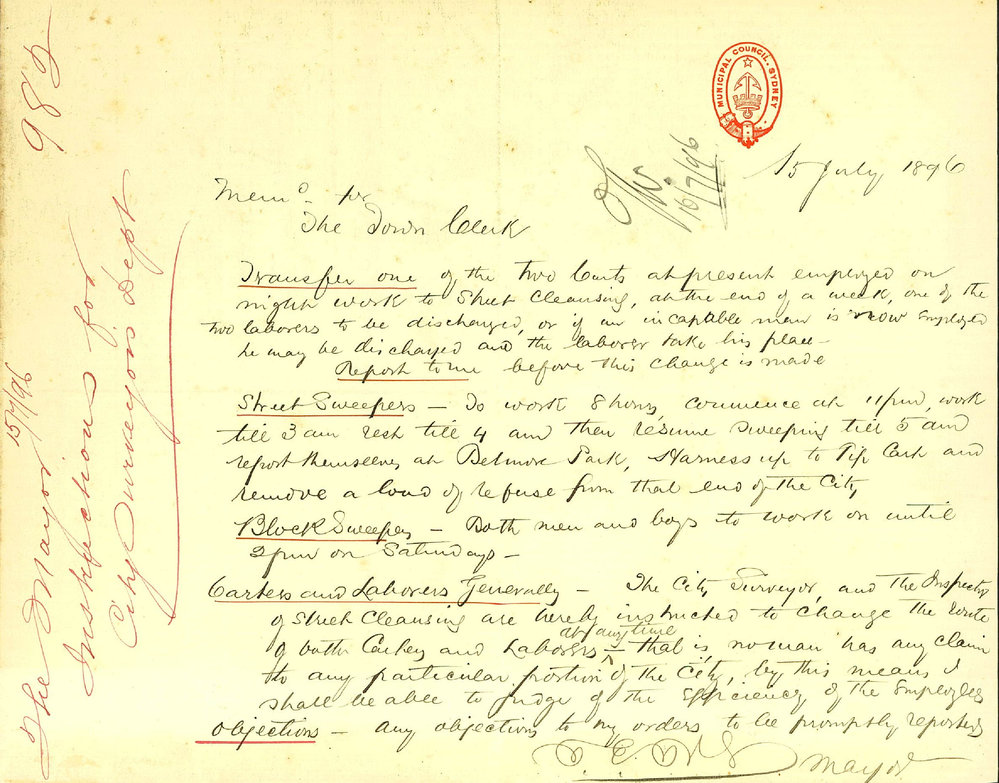 MUNICIPAL COUNCIL. SYDNEY
15 July 1896
16/7/96
Memo for
The Town Clerk
Transfer one of the two Carts at present employed on
night work to Street Cleansing, at the end of a week, one of the
two laborers to be discharged, or if an incapable man is now employed
he may be discharged and the laborer take his place -
Report to me before this change is made
Street Sweepers - To work 8 hours, commence at 11pm, work
till 3 am rest till 4 am then resume sweeping till 5 am
report themselves at Belmore Park, Harness up to Tip Cart and
remove a load of refuse from that end of the City
Block Sweepers - Both men and boys to work on until
2pm on Saturdays -
Carters and Laborers Generally - The City Surveyor, and the Inspector
of Street Cleansing are hereby instructed to change the route
of both Carters and Laborers at any time - that is, no man has any claim
to any particular portion of the City, by this means I
shall be able to judge of the efficiency of the Employees
Objections - any objections to my orders to be promptly reported
Mayor
982
The Mayor 15/7/96
Instructions for
City Surveyor's Dept